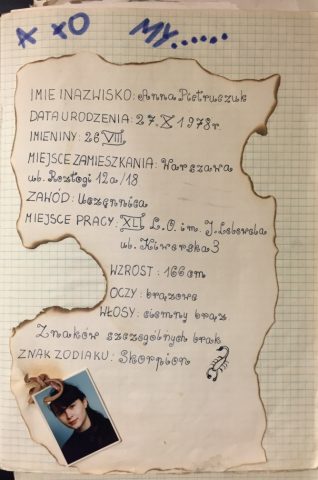 A XO MY......
IMIE I NAZWISKO: Anna Pietruczuk
DATA URODZENIA: 27.X 1978r.
IMIENINY: 26 VIII.
MIEJSCE ZAMIESZKANIA: Warszawa
ul. Rozłogi 12a/18
ZAWÓD: Uczennica
MIEJSCE PRACY: XLI L.O. im. J. Lelewela
ul. Kiwerska 3
WZROST: 166 cm
OCZY: brązowe
WŁOSY: ciemny brąz
Znaków szczególnych brak
ZNAK ZODIAKU: Skorpion